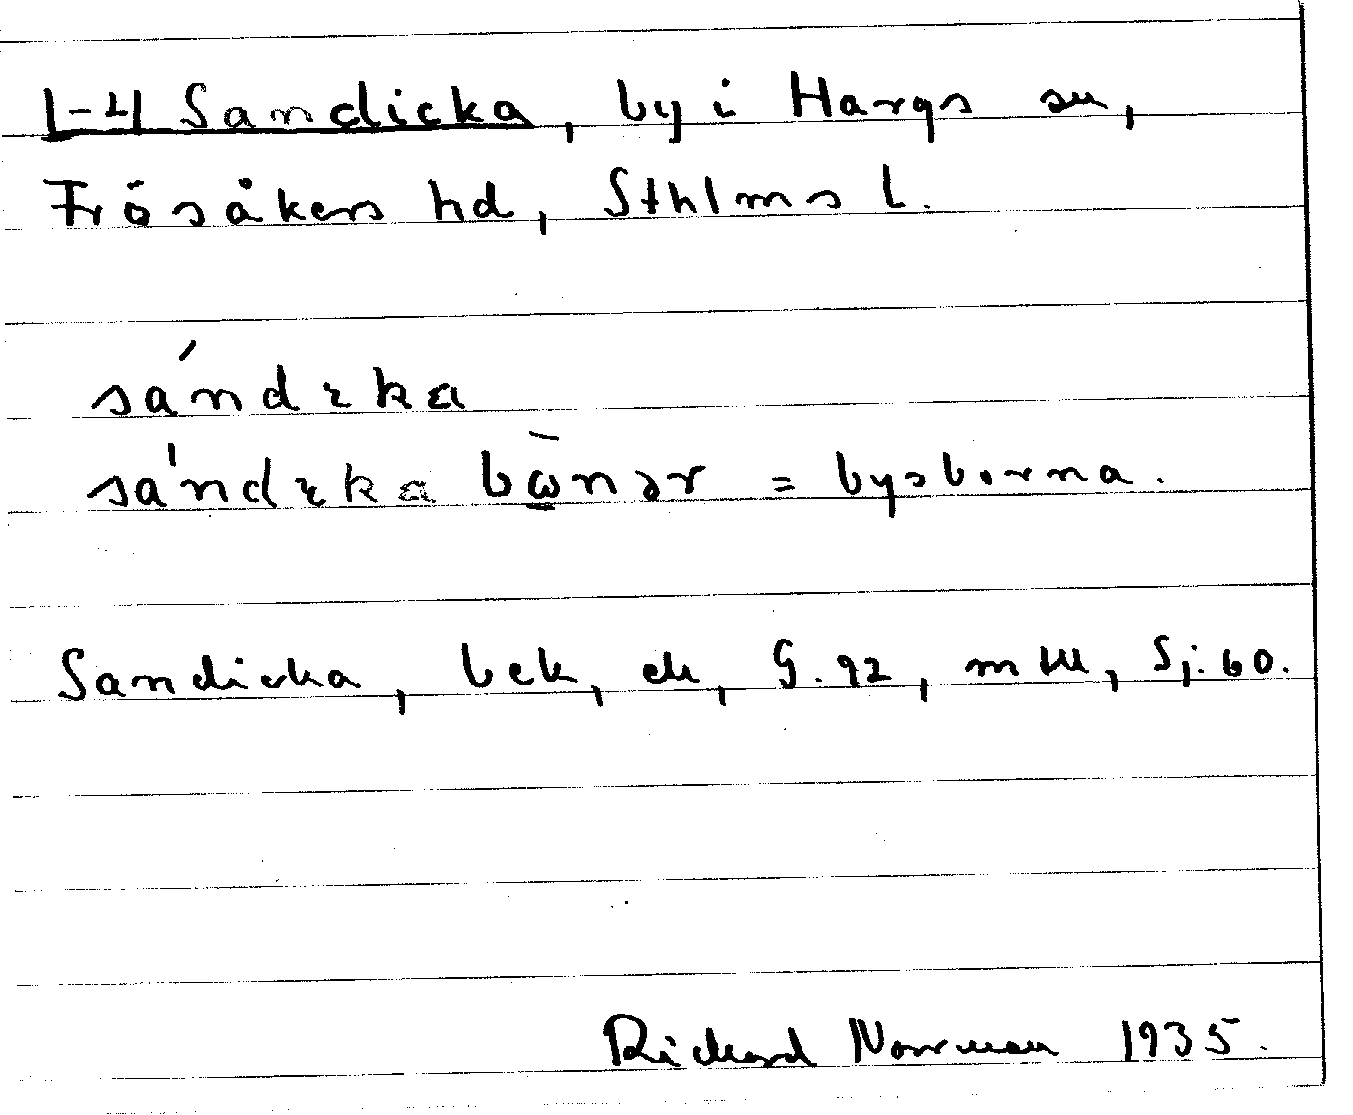 1-4 Sandicka, by i Hargs sn,
Frösåkers hd, Sthlms l.
sándɩka
sándɩka bὼnər = bysborna.
Sandicka, bek, ek, G. 92, m, Sj: 60.
Rickard Norrman 1935.